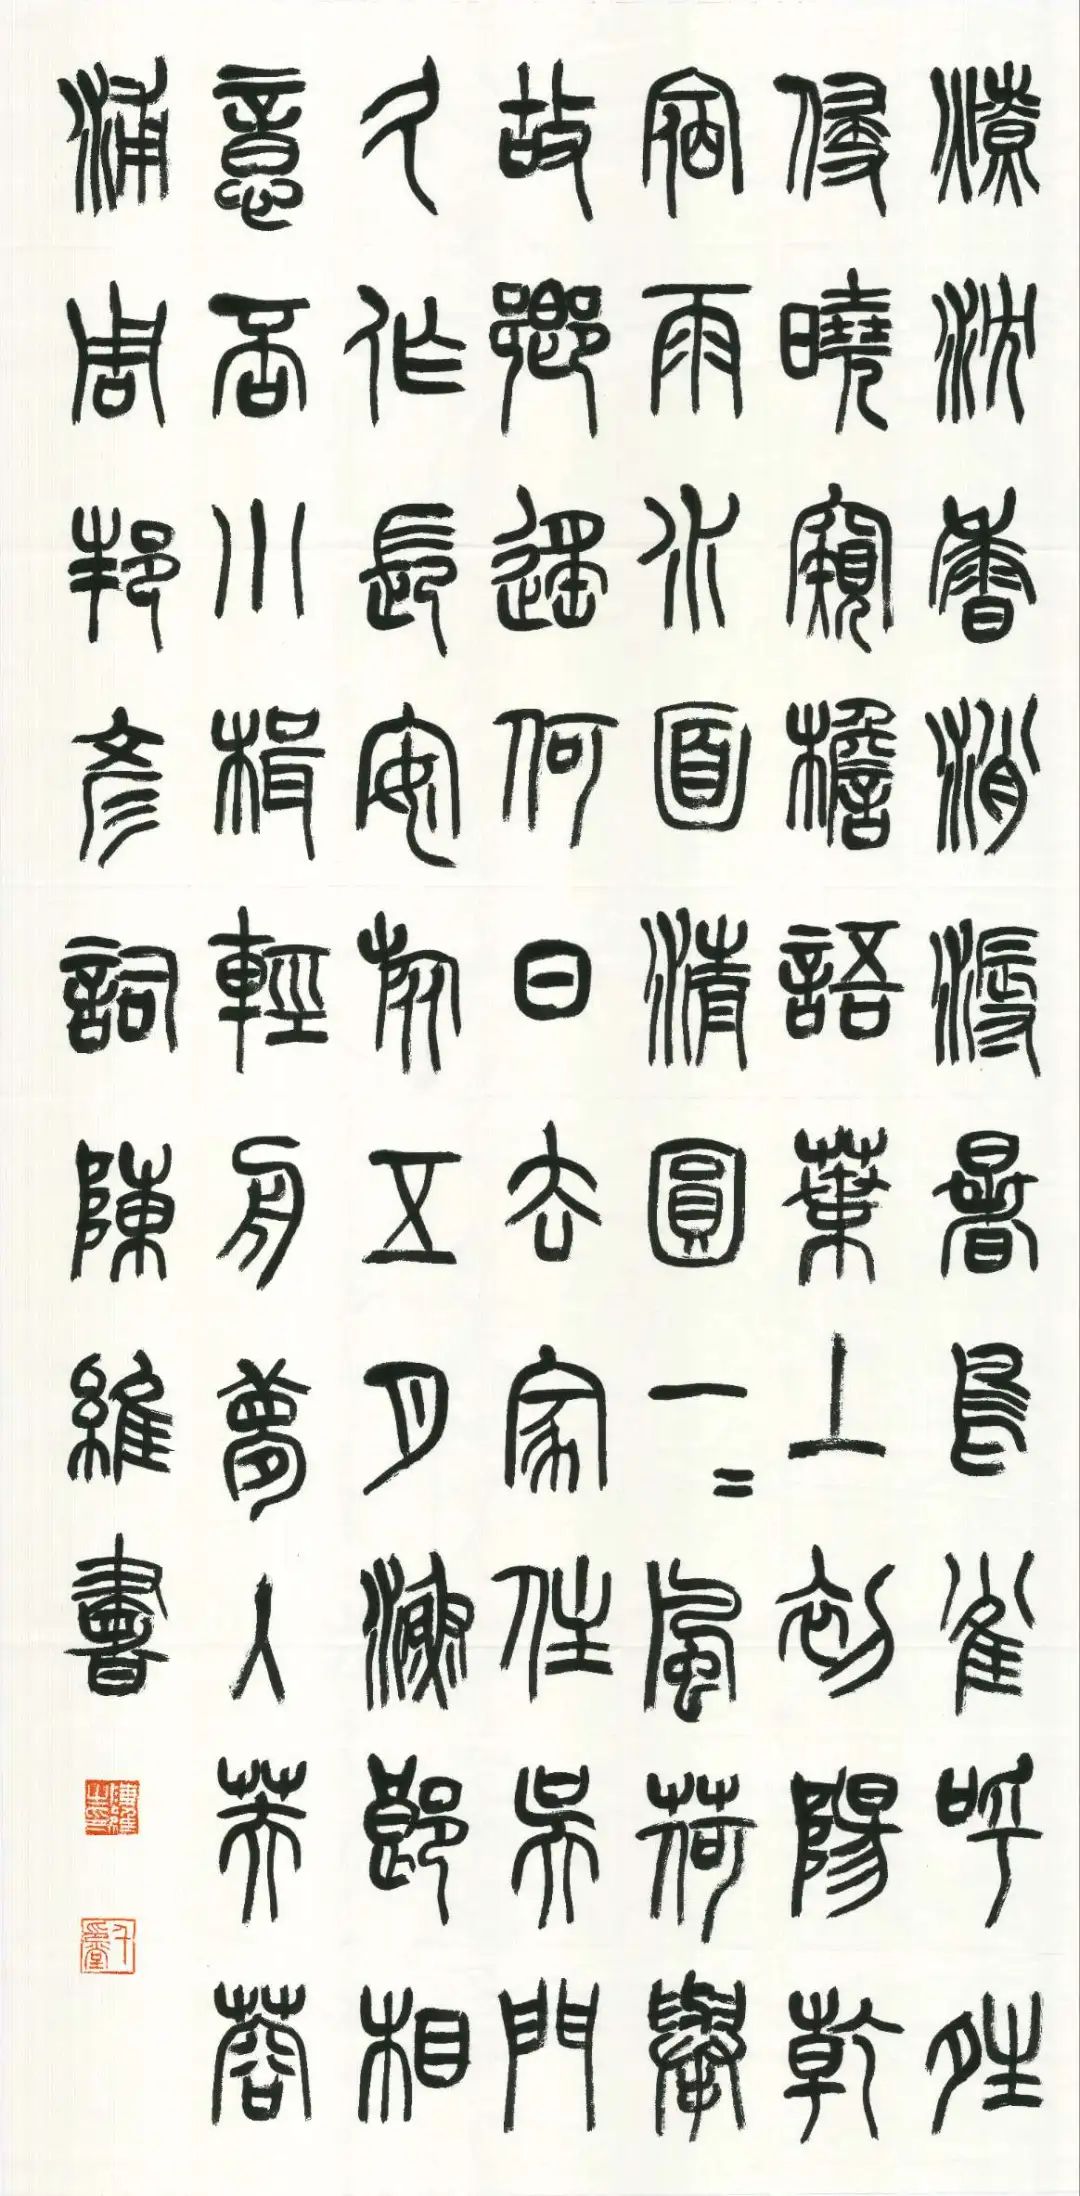 燎沈香消溽暑鳥雀呼晴
侵曉窺檐語葉上初陽乾
宿雨水面清圓一〻風荷舉
故鄉遙何日去家住吳門
久作長安旅五月漁郎相
意否小楫輕舟夢入芙蓉
浦周邦彥詞陳維書
陳維之印